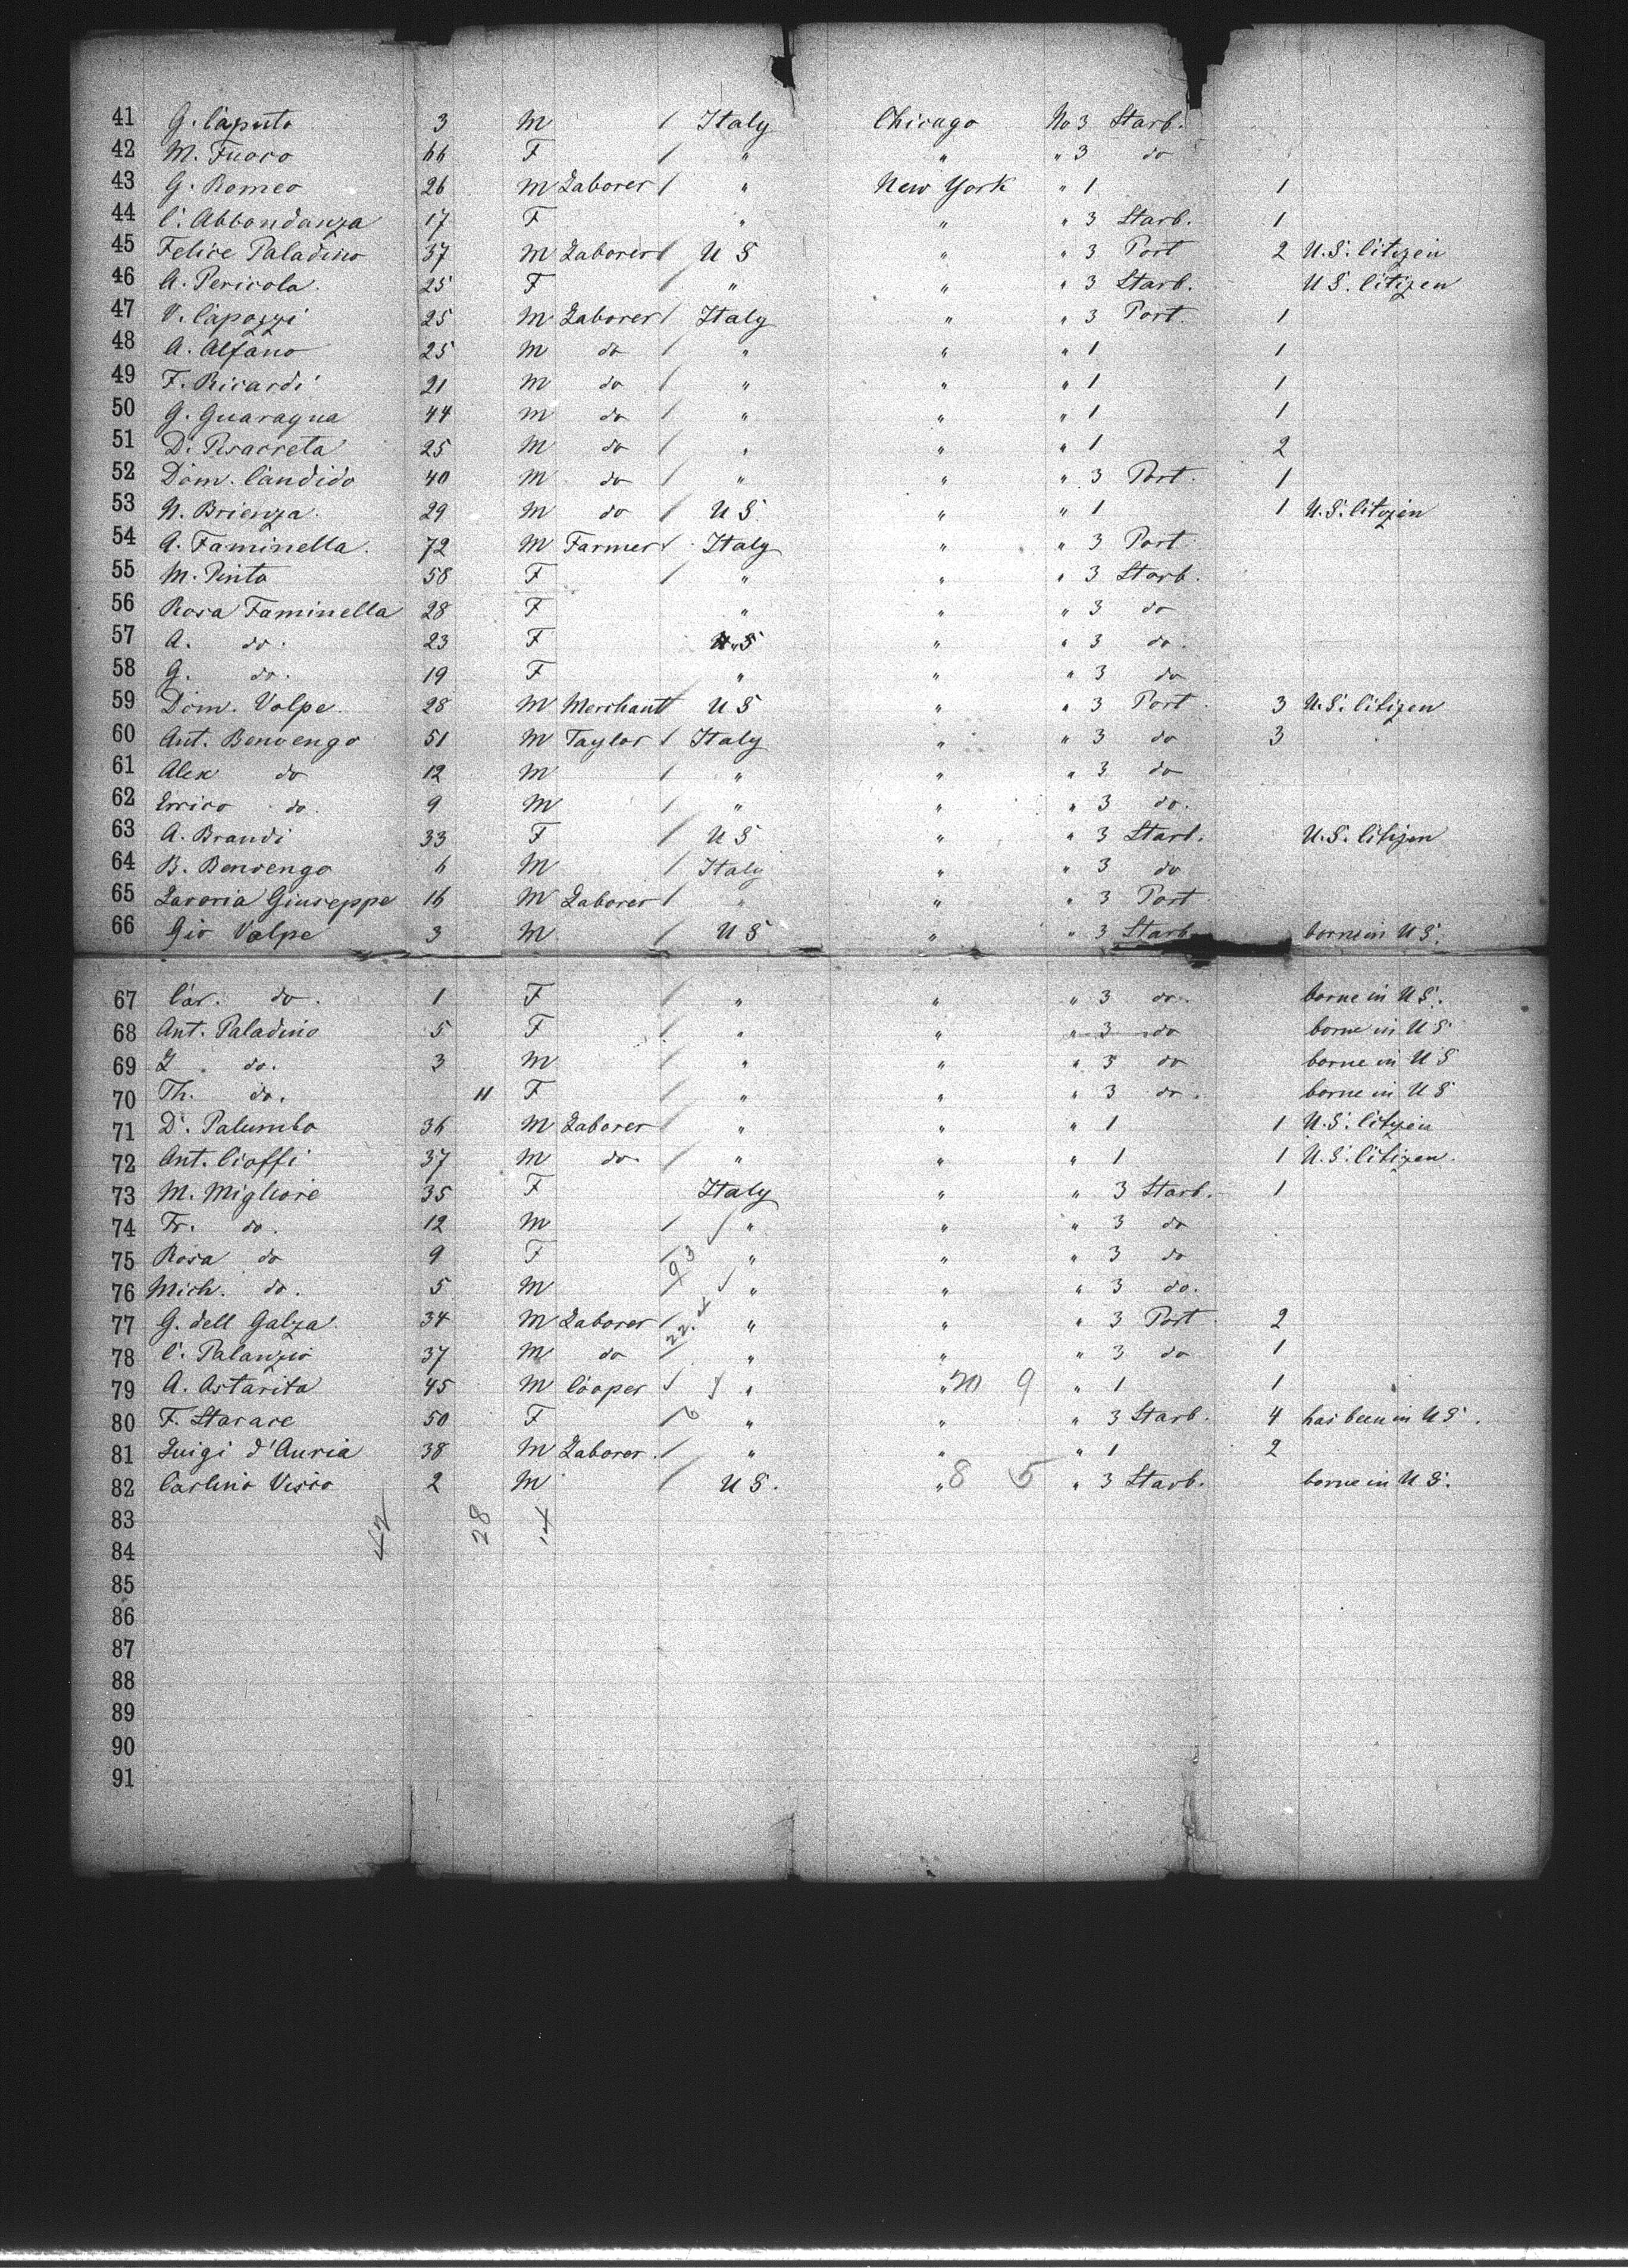 41 G. Caputo 3 M / Italy Chicago No 3 Starb.
42 M. Fuoro 66 F / " " " 3 do
43 G. Romeo 26 M Laborer / " New York " 1 1
44 C. Abbondanza 17 F " " " 3 Starb. 1
45 Felice Paladino 37 M Laborer / U S " " 3 Port 2 U.S. Citizen
46 A. Pericola. 25 F / " " " 3 Starb. U S. Citizen
47 V. Capozzi 25 M Laborer / Italy " " 3 Port. 1
48 A. Alfano 25 M do / " " " 1 1
49 F. Ricardi 21 M do / " " " 1 1
50 G. Guaragua 44 M do / " " " 1 1
51 D. Pisarreta 25 M do / " " " 1 2
52 Dom. Candido 40 M do / " " " 3 Port. 1
53 N. Brienza. 29 M do / U S " " 1 1 U.S. Citizen
54 A. Faminella. 72 M Farmer / Italy " " 3 Port.
55 M. Pinto 58 F / " " " 3 Starb.
56 Rosa Faminella 28 F " " " 3 do
57 A. do. 23 F U S " " 3 do.
58 G. do. 19 F " " " 3 do
59 Dom. Volpe. 28 M Merchant U S " " 3 Port. 3 U.S. Citizen
60 Ant. Benvengo 51 M Taylor / Italy " " 3 do 3
61 Alex do 12 M / " " " 3 do
62 Errico do. 9 M / " " " 3 do.
63 A. Brandi 33 F / U S " " 3 Starb. U.S. Citizen
64 B. Benvengo 6 M / Italy " " 3 do
65 Lavoria Giuseppe 16 M Laborer / " " " 3 Port.
66 Gio Volpe 3 M / U S " " 3 Starb borne in U S.
67 Car. do. 1 F / " " " 3 do. borne in U S.
68 Ant. Paladino 5 F / " " " 3 do borne in U S
69 L. do. 3 M / " " " 3 do borne in U S
70 Th. do. 11 F / " " " 3 do. borne in U S
71 D. Palumbo 36 M Laborer / " " " 1 1 U.S. Citizen
72 Ant. Cioffi 37 M do. / " " " 1 1 U.S. Citizen.
73 M. Migliore 35 F Italy " " 3 Starb. 1
74 Fr. do. 12 M / " " " 3 do
75 Rosa do 9 F / 93 " " " 3 do
76 Mich. do. 5 M / " " " 3 do.
77 G. dell Galza. 34 M Laborer / 22. " " " 3 Port. 2
78 C. Palanzio 37 M do / " " " 3 do 1
79 A. Astarita 45 M Cooper / " " 70 9 " 1 1
80 F. Starace 50 F / 6 " " " 3 Starb. 4 has been in U S.
81 Luigi d'Auria 38 M Laborer. / " " " 1 2
82 Carlino Visco 2 M / U S. " 8 5 " 3 Starb. borne in U S.
83 42 28
84
85
86
87
88
89
90
91